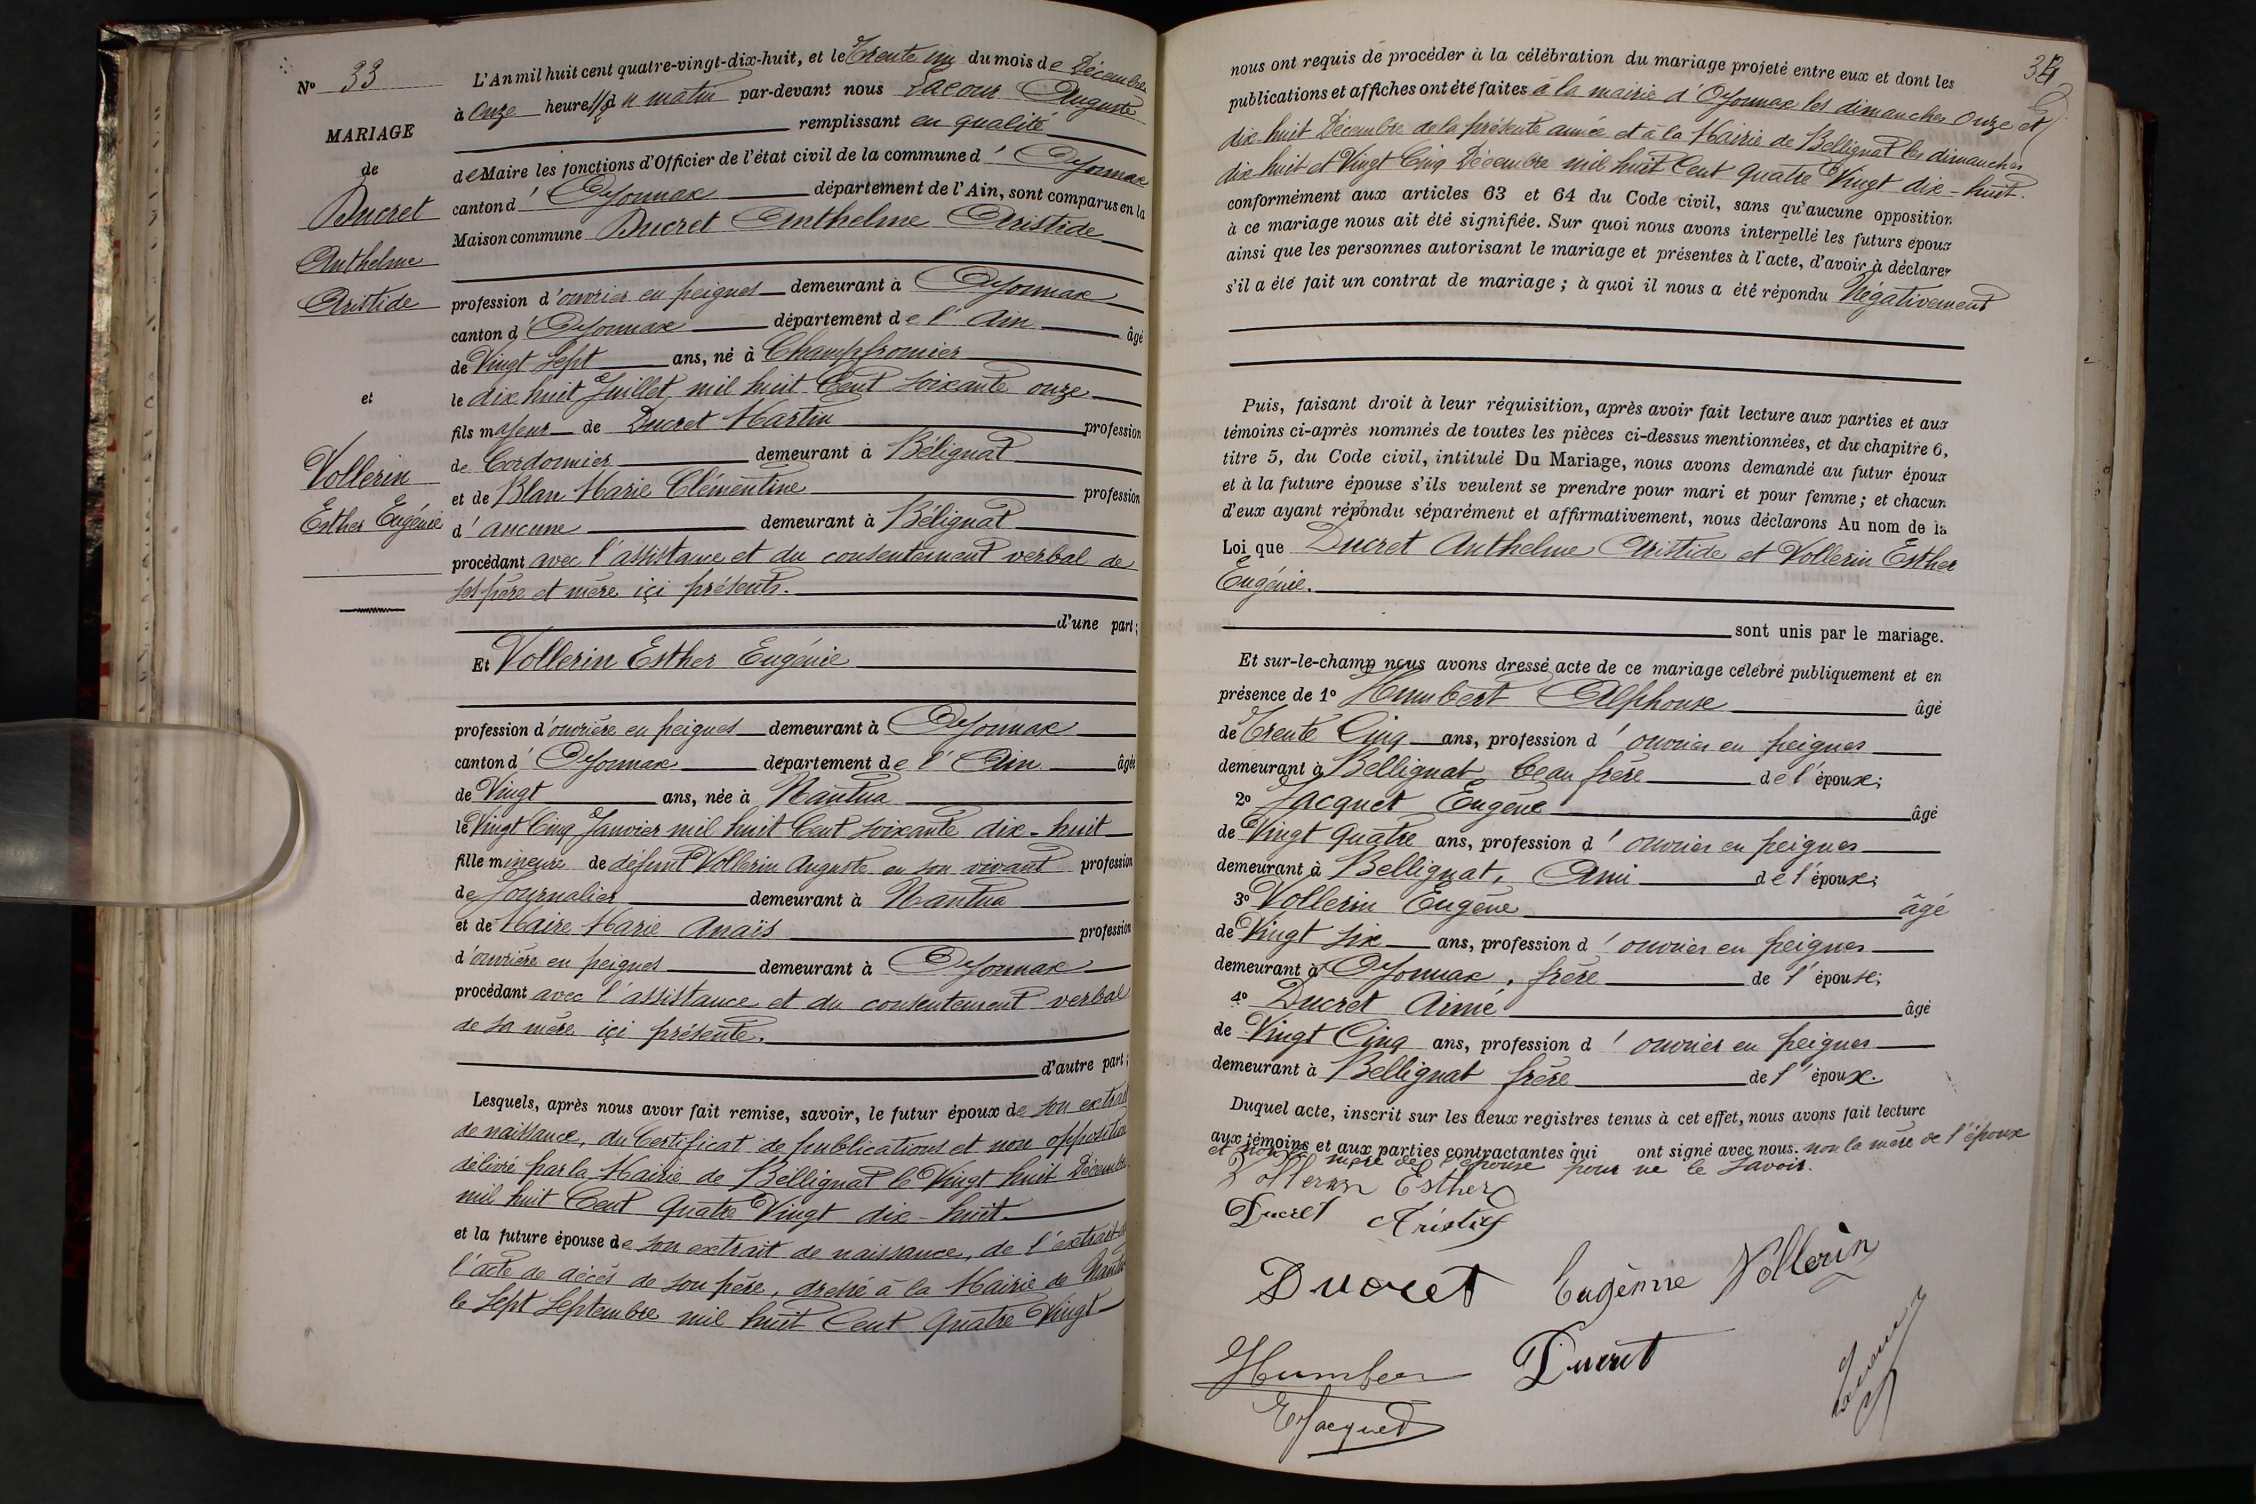 N° 33
MARIAGE
de
Ducret
Anthelme
Aristide
et
Vollerin
Esther Eugénie
L'An mil huit cent quatre-vingt-dix-huit, et le Trente un du mois de Décembre
à onze heures du matin par-devant nous Lacour Auguste
remplissant en qualité
de Maire les fonctions d'Officier de l'état civil de la commune d'Oyonnax
canton d'Oyonnax département de l'Ain, sont comparus en la
Maison commune Ducret Anthelme Aristide
profession d'ouvrier en peignes demeurant à Oyonnax
canton d'Oyonnax département de l'Ain âgé
de Vingt Sept ans, né à Champfromier
le dix huit Juillet mil huit Cent soixante onze
fils majeur de Ducret Martin profession
de Cordonnier demeurant à Bélignat
et de Blan Marie Clémentine profession
d'aucune demeurant à Bélignat
procédant avec l'assistance et du consentement verbal de
ses père et mère içi présents.
d'une part;
Et Vollerin Esther Eugénie
profession d'ouvrière en peignes demeurant à Oyonnax
canton d'Oyonnax département de l'Ain âgée
de Vingt ans, née à Nantua
le Vingt Cinq Janvier mil huit Cent soixante dix-huit
fille mineure de défunt Vollerin Auguste en son vivant profession
de Journalier demeurant à Nantua
et de Maire Marie Anaïs profession
d'ouvrière en peignes demeurant à Oyonnax
procédant avec l'assistance et du consentement verbal
de sa mère içi présente.
d'autre part;
Lesquels, après nous avoir fait remise, savoir, le futur époux de son extrait
de naissance, du Certificat de publications et non opposition
délivré par la Mairie de Bellignat le Vingt huit Décembre
mil huit Cent Quatre Vingt dix-huit.
et la future épouse de son extrait de naissance, de l'extrait de
l'acte de décès de son père, dressé à la Mairie de Nantua
le Sept Septembre mil huit Cent Quatre Vingt
34
nous ont requis de procéder à la célébration du mariage projeté entre eux et dont les
publications et affiches ont été faites à la mairie d'Oyonnax les dimanches Onze et
dix huit Décembre de la présente année et à la Mairie de Bellignat les dimanches
dix huit et Vingt Cinq Décembre mil huit Cent Quatre Vingt dix-huit.
conformément aux articles 63 et 64 du Code civil, sans qu'aucune opposition
à ce mariage nous ait été signifiée. Sur quoi nous avons interpellé les futurs époux
ainsi que les personnes autorisant le mariage et présentes à l'acte, d'avoir à déclarer
s'il a été fait un contrat de mariage; à quoi il nous a été répondu Négativement
Puis, faisant droit à leur réquisition, après avoir fait lecture aux parties et aux
témoins ci-après nommés de toutes les pièces ci-dessus mentionnées, et du chapitre 6,
titre 5, du Code civil, intitulé Du Mariage, nous avons demandé au futur époux
et à la future épouse s'ils veulent se prendre pour mari et pour femme; et chacun
d'eux ayant répondu séparément et affirmativement, nous déclarons Au nom de la
Loi que Ducret Anthelme Aristide et Vollerin Esther
Eugénie.
sont unis par le mariage.
Et sur-le-champ nous avons dressé acte de ce mariage célébré publiquement et en
présence de 1° Humbert Alphonse âgé
de Trente Cinq ans, profession d'ouvrier en peignes
demeurant à Bellignat beau frère de l'époux;
2° Jacquet Eugène âgé
de Vingt quatre ans, profession d'ouvrier en peignes
demeurant à Bellignat, Ami de l'époux;
3° Vollerin Eugène âgé
de Vingt six ans, profession d'ouvrier en peignes
demeurant à Oyonnax, frère de l'épouse;
4° Ducret Aimé âgé
de Vingt Cinq ans, profession d'ouvrier en peignes
demeurant à Bellignat frère de l'époux.
Duquel acte, inscrit sur les deux registres tenus à cet effet, nous avons fait lecture
aux témoins et aux parties contractantes qui ont signé avec nous. non la mère de l'époux
et non la mère de l'épouse pour ne le savoir.
Vollerin Esther
Ducret Aristide
Ducret Eugènne Vollerin
Humber Ducret
E Jacquet
Lacour